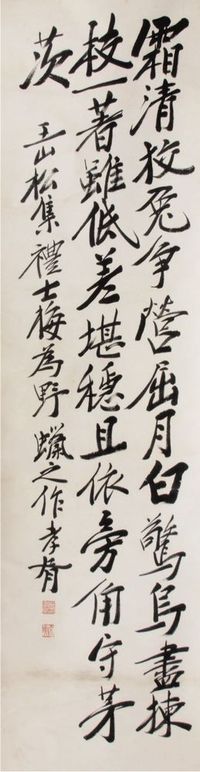 霜清狡兔争營屈月白驚烏盡揀
枝一著雖低差堪穩且依旁角守茅
茨
王山松集禮士梅為野蠟之作孝胥